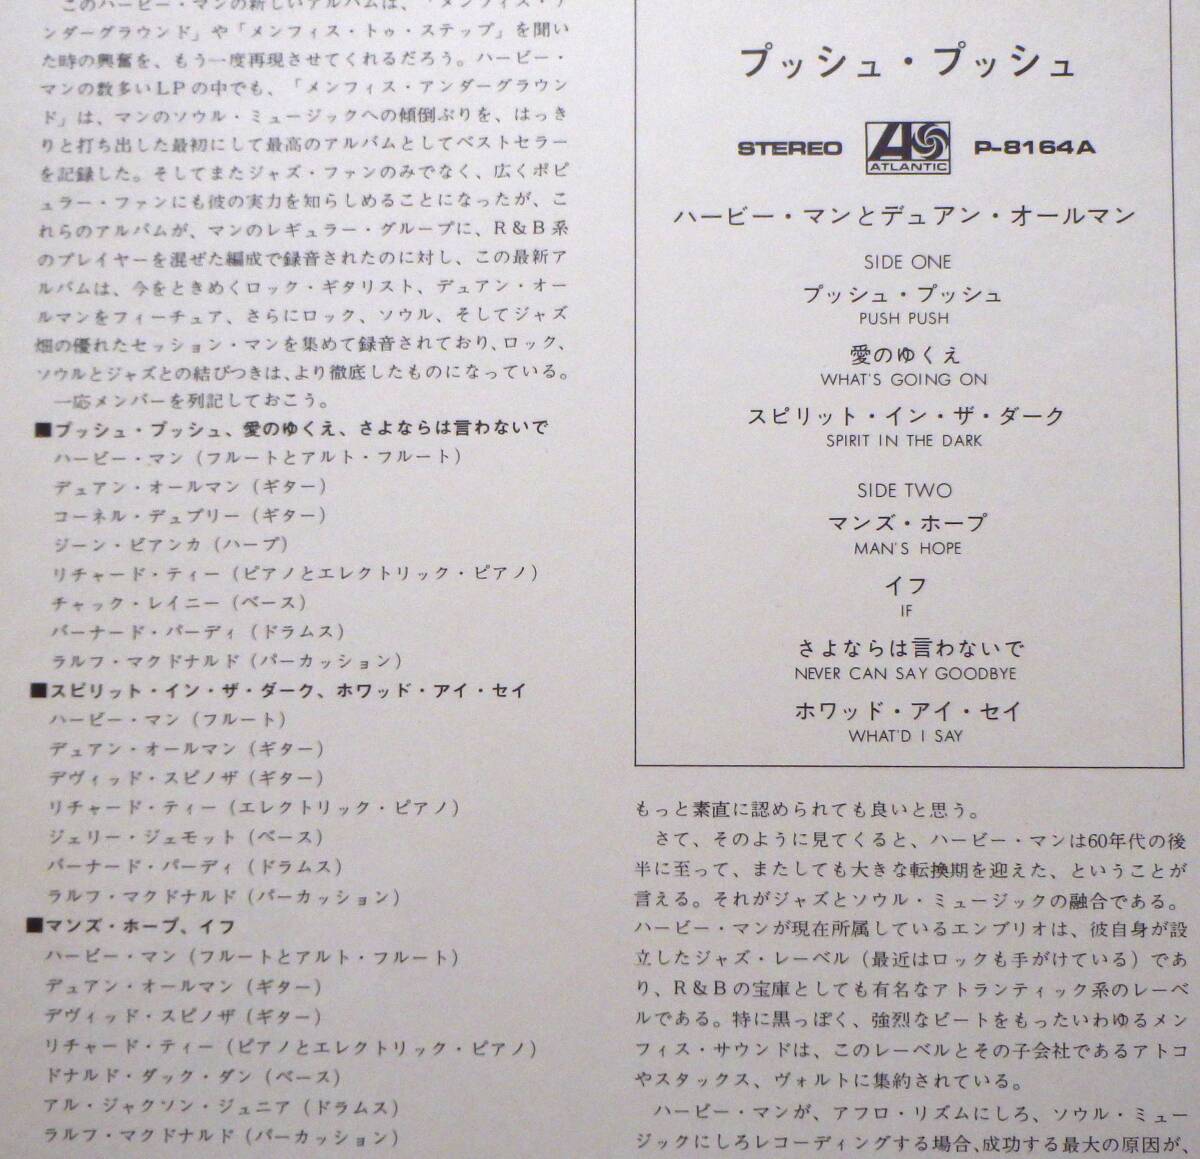 このハービー・マンの新しいアルバムは、「メンフィス・ア
ンダーグラウンド」や「メンフィス・トゥ・ステップ」を聞い
た時の興奮を、もう一度再現させてくれるだろう。ハービー・
マンの数多いLPの中でも、「メンフィス・アンダーグラウン
ド」は、マンのソウル・ミュージックへの傾倒ぶりを、はっき
りと打ち出した最初にして最高のアルバムとしてベストセラー
を記録した。そしてまたジャズ・ファンのみでなく、広くポピ
ュラー・ファンにも彼の実力を知らしめることになったが、こ
れらのアルバムが、マンのレギュラー・グループに、R&B系
のプレイヤーを混ぜた編成で録音されたのに対し、この最新ア
ルバムは、今をときめくロック・ギタリスト、デュアン・オー
ルマンをフィーチュア、さらにロック、ソウル、そしてジャズ
畑の優れたセッション・マンを集めて録音されており、ロック、
ソウルとジャズとの結びつきは、より徹底したものになっている。
一応メンバーを列記しておこう。
■プッシュ・プッシュ、愛のゆくえ、さよならは言わないで
ハービー・マン(フルートとアルト・フルート)
デュアン・オールマン(ギター)
コーネル・デュプリー(ギター)
ジーン・ビアンカ(ハープ)
リチャード・ティー(ピアノとエレクトリック・ピアノ)
チャック・レイニー(ベース)
バーナード・パーディ(ドラムス)
ラルフ・マクドナルド(パーカッション)
■スピリット・イン・ザ・ダーク、ホワッド・アイ・セイ
ハービー・マン(フルート)
デュアン・オールマン(ギター)
デヴィッド・スピノザ(ギター)
リチャード・ティー(エレクトリック・ピアノ)
ジェリー・ジェモット(ベース)
バーナード・パーディ(ドラムス)
ラルフ・マクドナルド(パーカッション)
■マンズ・ホープ、イフ
ハービー・マン(フルートとアルト・フルート)
デュアン・オールマン(ギター)
デヴィッド・スピノザ(ギター)
リチャード・ティー(ピアノとエレクトリック・ピアノ)
ドナルド・ダック・ダン(ベース)
アル・ジャクソン・ジュニア(ドラムス)
ラルフ・マクドナルド(パーカッション)
プッシュ・プッシュ
STEREO ATLANTIC P-8164A
ハービー・マンとデュアン・オールマン
SIDE ONE
プッシュ・プッシュ
PUSH PUSH
愛のゆくえ
WHAT'S GOING ON
スピリット・イン・ザ・ダーク
SPIRIT IN THE DARK
SIDE TWO
マンズ・ホープ
MAN'S HOPE
イフ
IF
さよならは言わないで
NEVER CAN SAY GOODBYE
ホワッド・アイ・セイ
WHAT'D I SAY
もっと素直に認められても良いと思う。
さて、そのように見てくると、ハービー・マンは60年代の後
半に至って、またしても大きな転換期を迎えた、ということが
言える。それがジャズとソウル・ミュージックの融合である。
ハービー・マンが現在所属しているエンブリオは、彼自身が設
立したジャズ・レーベル(最近はロックも手がけている)であ
り、R&Bの宝庫としても有名なアトランティック系のレーベ
ルである。特に黒っぽく、強烈なビートをもったいわゆるメン
フィス・サウンドは、このレーベルとその子会社であるアトコ
やスタックス、ヴォルトに集約されている。
ハービー・マンが、アフロ・リズムにしろ、ソウル・ミュー
ジックにしろレコーディングする場合、成功する最大の原因が、